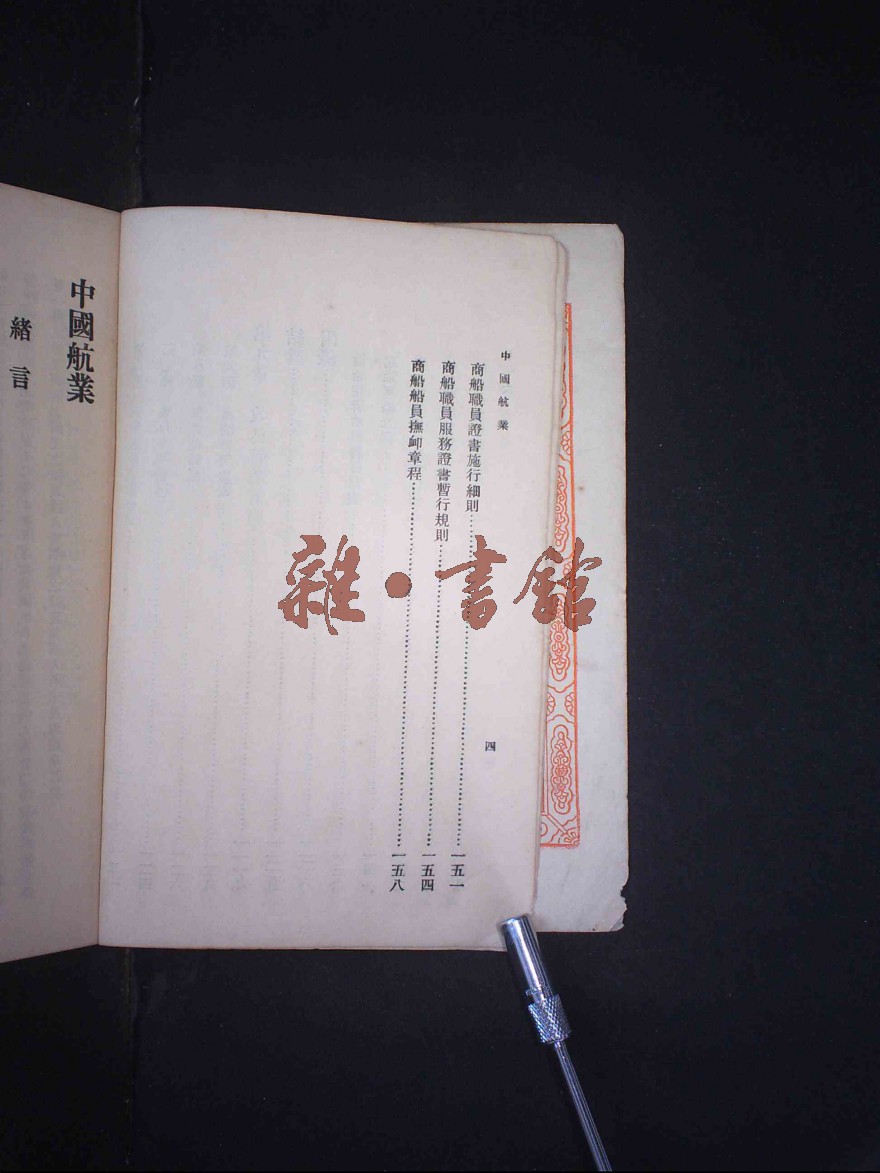 中國航業
四
商船職員證書施行細則⋯⋯⋯⋯⋯⋯⋯⋯⋯⋯一五一
商船職員服務證書暫行規則⋯⋯⋯⋯⋯⋯⋯⋯⋯⋯一五四
商船船員撫卹章程⋯⋯⋯⋯⋯⋯⋯⋯⋯⋯一五八
中國航業
緒言
雜·書館